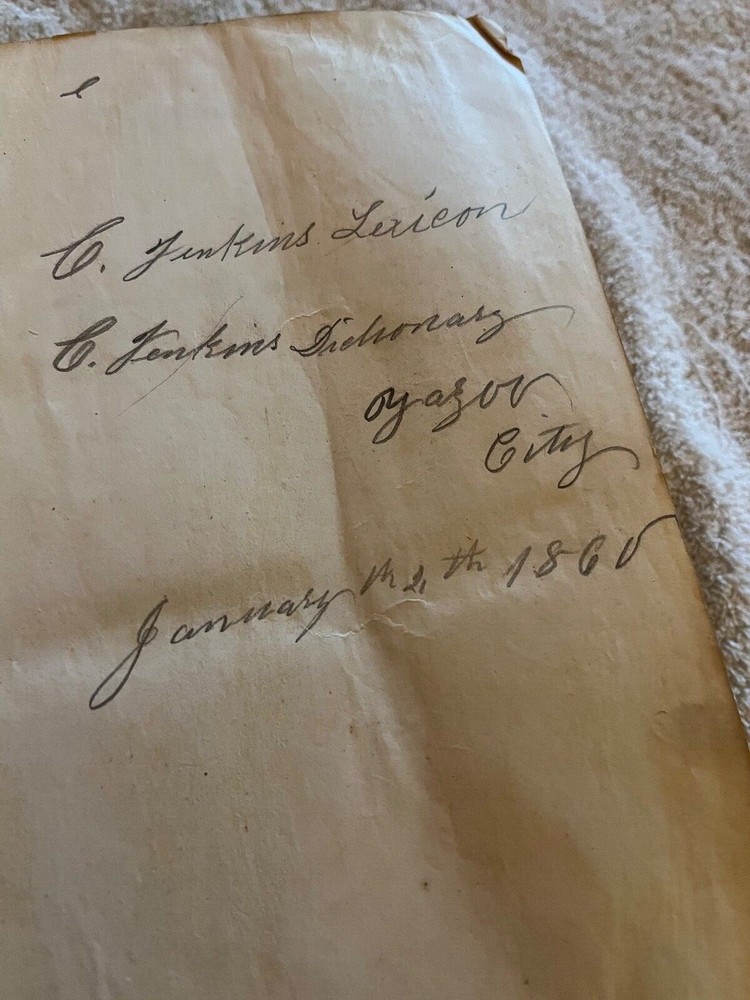 C. Jenkins Lexicon
C. Jenkins Dictionary
Yazoo
City
January th 4 th 1860